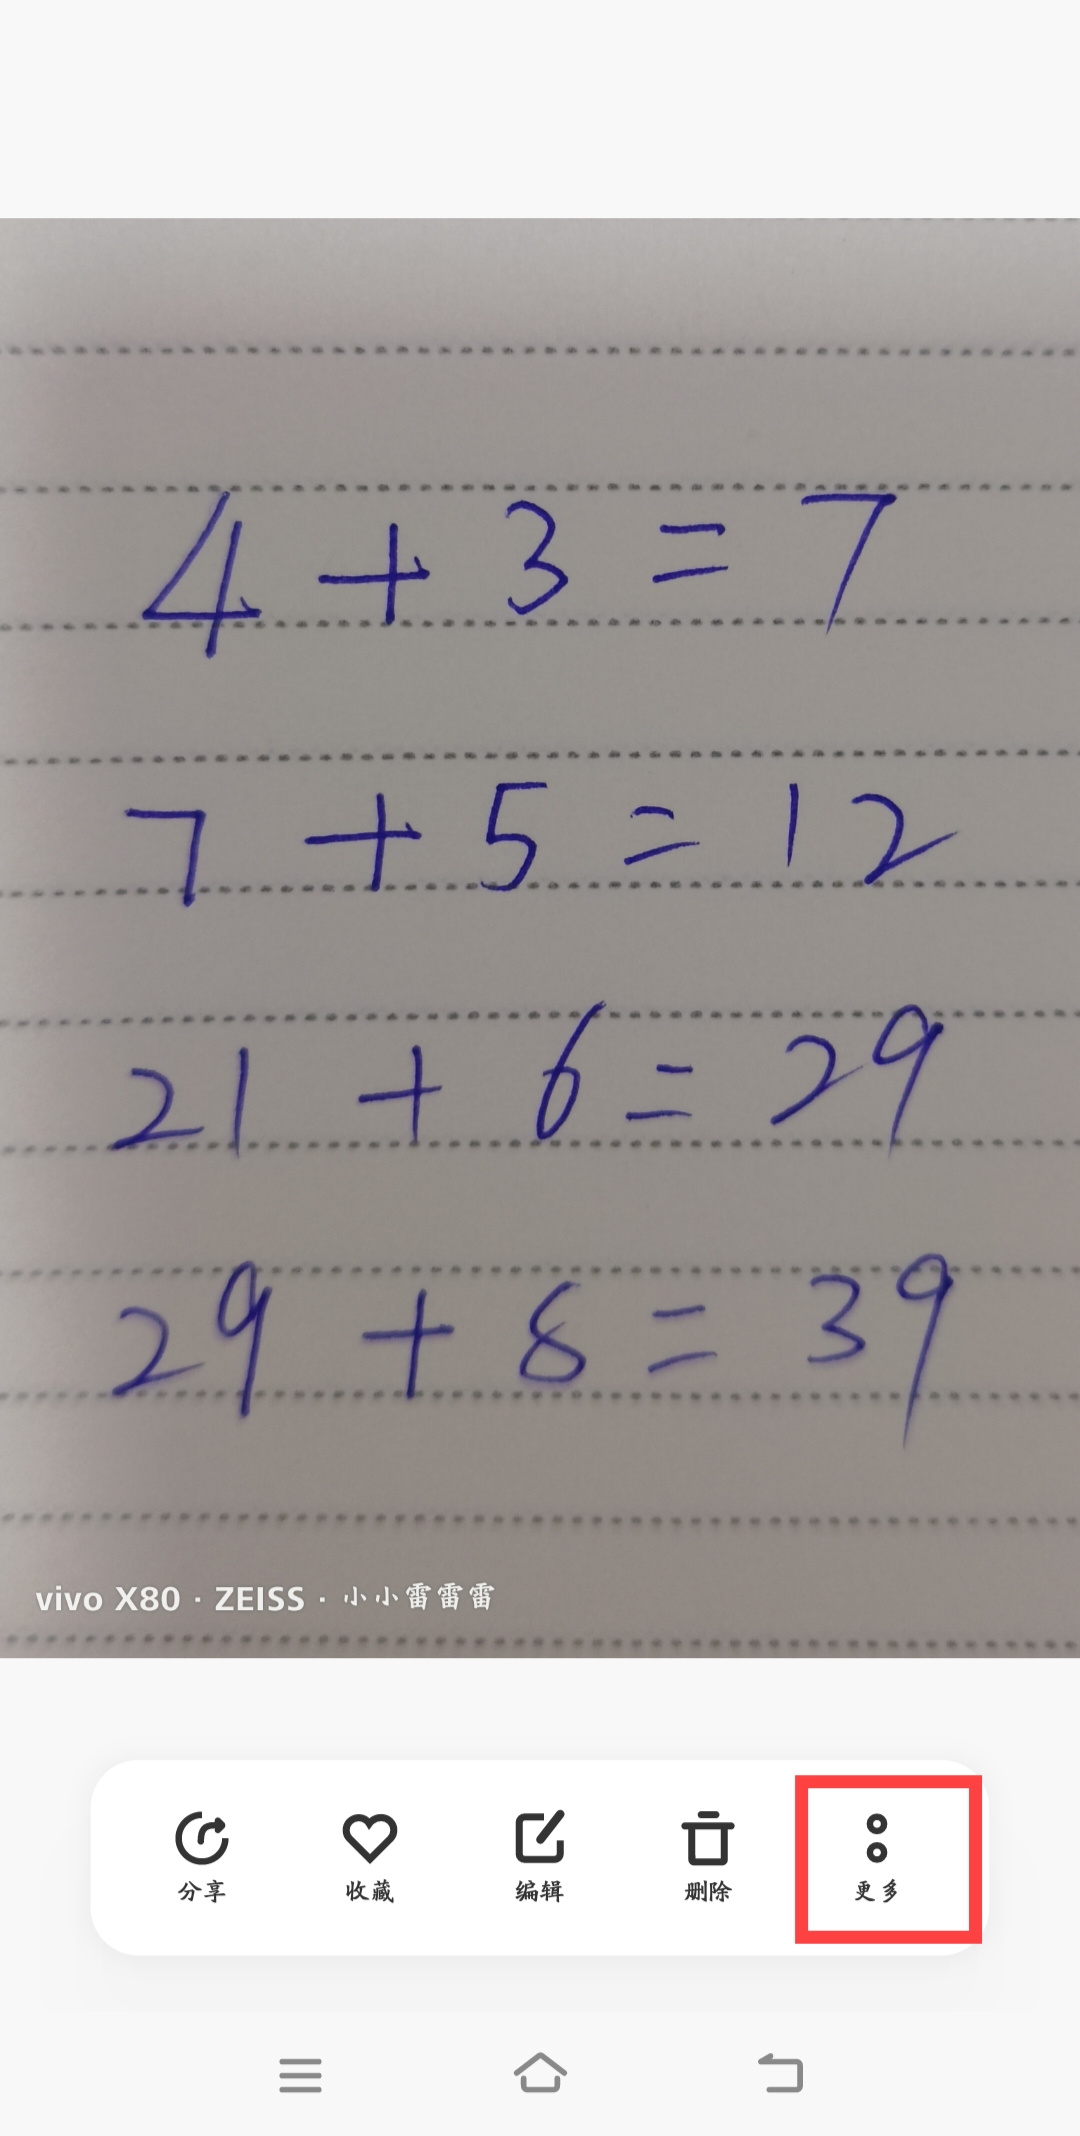 4 + 3 = 7
7 + 5 = 12
21 + 6 = 29
29 + 8 = 39
vivo X80 · ZEISS · 小小雷雷雷
分享 收藏 编辑 删除 更多